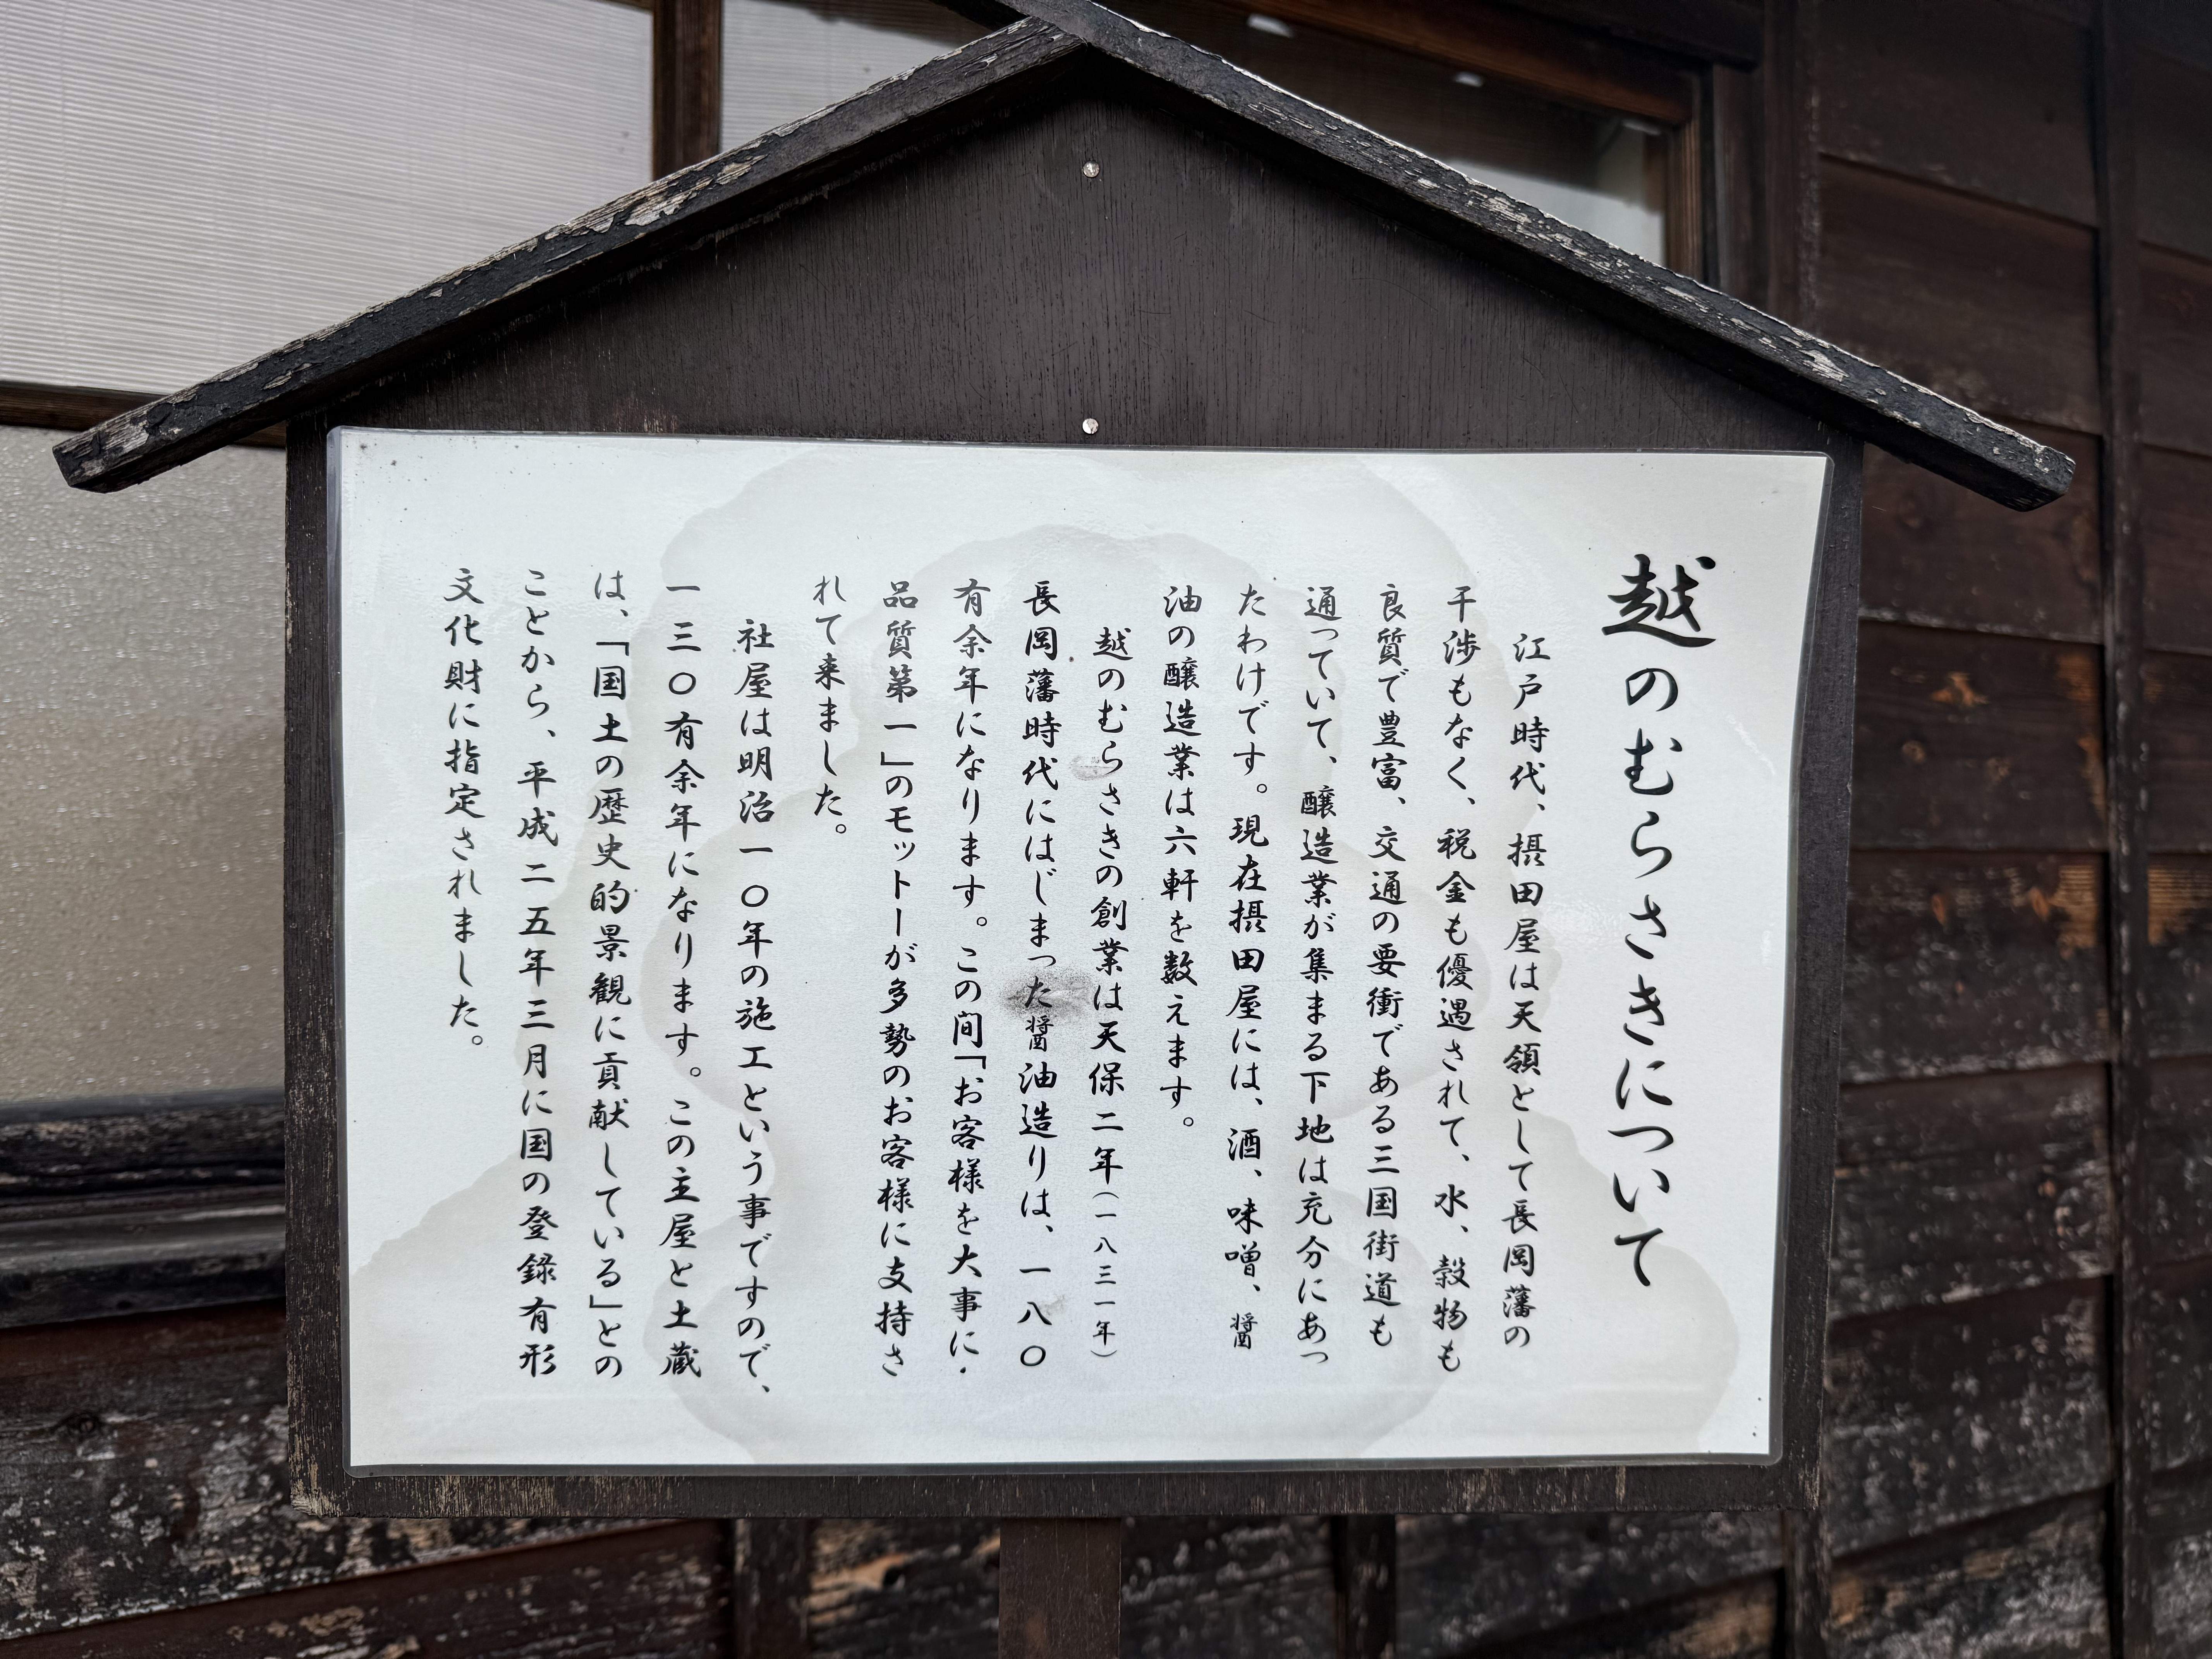 越のむらさきについて
江戸時代、摂田屋は天領として長岡藩の
干渉もなく、税金も優遇されて、水、穀物も
良質で豊富、交通の要衝である三国街道も
通っていて、醸造業が集まる下地は充分にあっ
たわけです。現在摂田屋には、酒、味噌、醤
油の醸造業は六軒を数えます。
越のむらさきの創業は天保二年（一八三一年）
長岡藩時代にはじまった醤油造りは、一八〇
有余年になります。この間「お客様を大事に・
品質第一」のモットーが多勢のお客様に支持さ
れて来ました。
社屋は明治一〇年の施工という事ですので、
一三〇有余年になります。この主屋と土蔵
は、「国土の歴史的景観に貢献している」との
ことから、平成二五年三月に国の登録有形
文化財に指定されました。